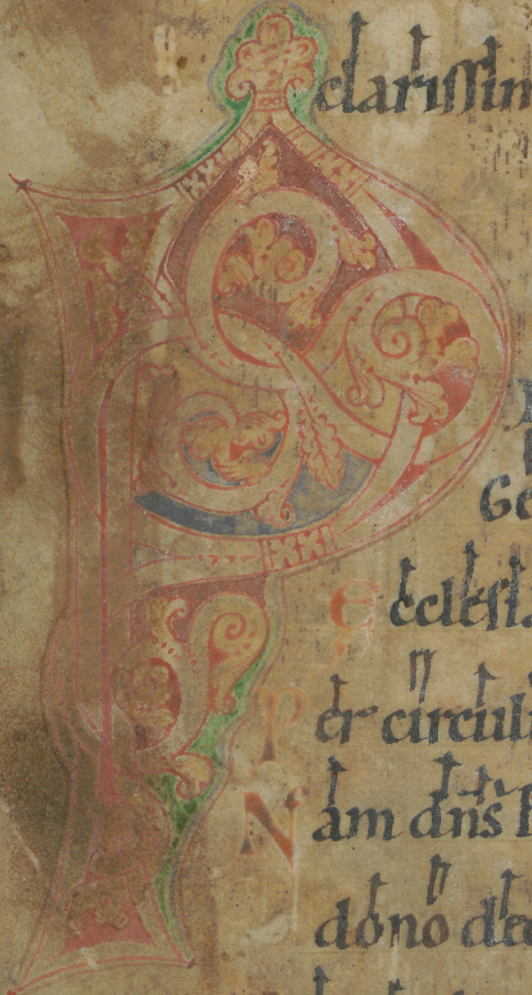 P clarissim
Ge
e ecclesi
Per circuli
Nam dn̄s
dono da